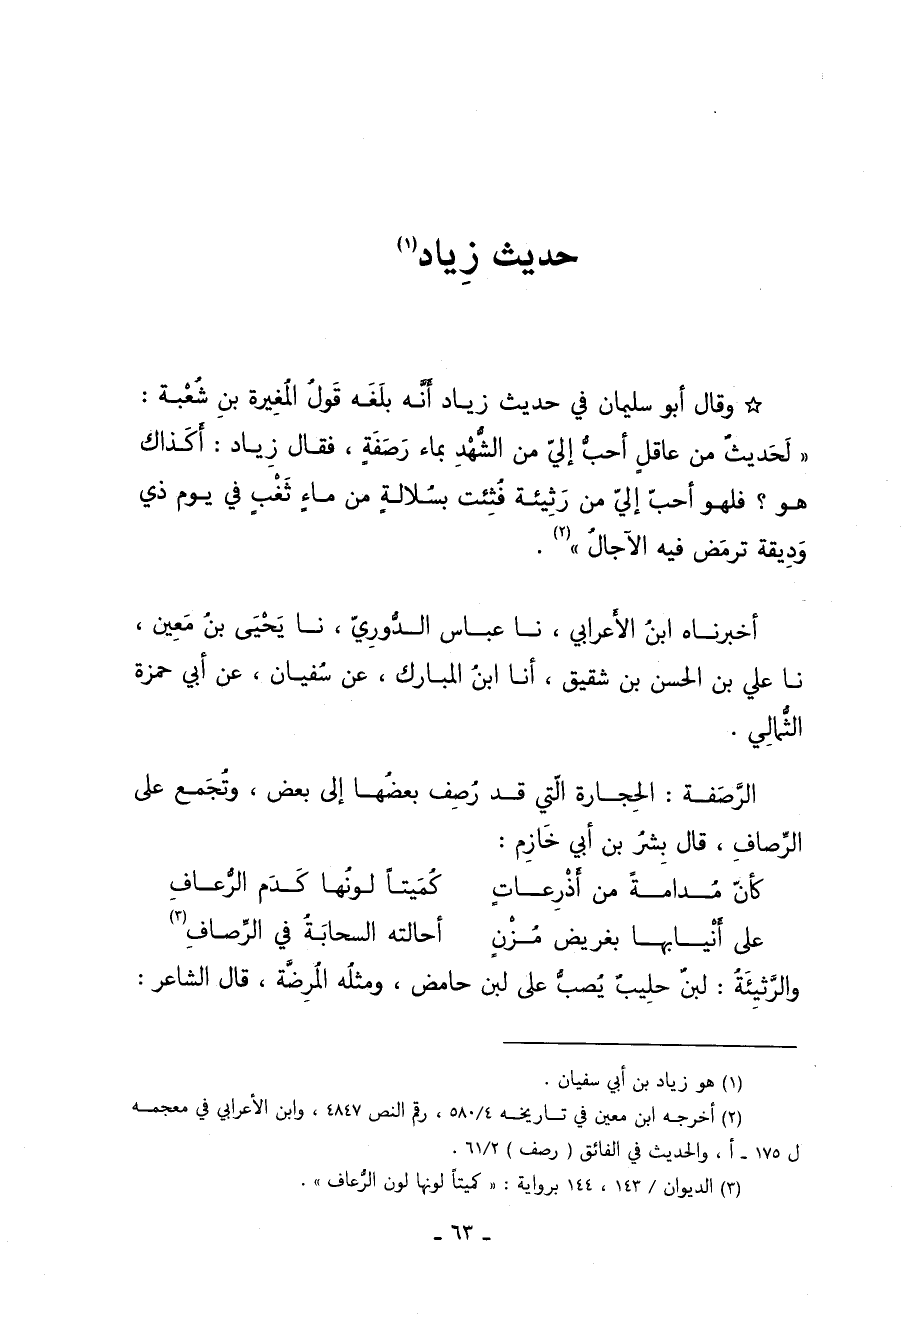 حديث زِياد(١)
☆ وقال أبو سليمان في حديث زياد أنَّه بلَغَه قَولُ المُغِيرة بنِ شُعْبة :
« لَحَديثٌ من عاقلٍ أحبُّ إليّ من الشُّهْدِ بماء رَصَفَةٍ ، فقال زِياد : أكَذاك
هو ؟ فلهو أحبّ إليّ من رَثِيئة فُثِئت بسُلالةٍ من ماءٍ ثَغْبٍ في يوم ذي
وَدِيقة ترمَض فيه الآجالُ »(٢) .
أخبرناه ابنُ الأَعرابي ، نا عباس الدُّورِيّ ، نا يَحْيَى بنُ مَعِين ،
نا علي بن الحسن بن شقيق ، أنا ابنُ المبارك ، عن سُفيان ، عن أبي حمزة
الثُّمالِي .
الرَّصَفة : الحِجارة الّتي قد رُصِف بعضُها إلى بعض ، وتُجَمع على
الرِّصاف ، قال بِشرُ بن أبي خَازِم :
كأنّ مُدامةً من أَذْرِعاتٍ كُمَيتاً لونُها كَدَم الرُّعافِ
على أَنْيابها بغَريض مُزْنٍ أحالته السحابَةُ في الرِّصافِ(٣)
والرَّثِيئَةُ : لبنٌ حليبٌ يُصبُّ على لبن حامض ، ومثلُه المُرِضَّة ، قال الشاعر :
(١) هو زياد بن أبي سفيان .
(٢) أخرجه ابن معين في تاريخه ٥٨٠/٤ ، رقم النص ٤٨٤٧ ، وابن الأعرابي في معجمه
ل ١٧٥ ـ أ ، والحديث في الفائق ( رصف ) ٦١/٢ .
(٣) الديوان / ١٤٣ ، ١٤٤ برواية : « كميتاً لونها لون الرُّعاف » .
ـ ٦٣ ـ